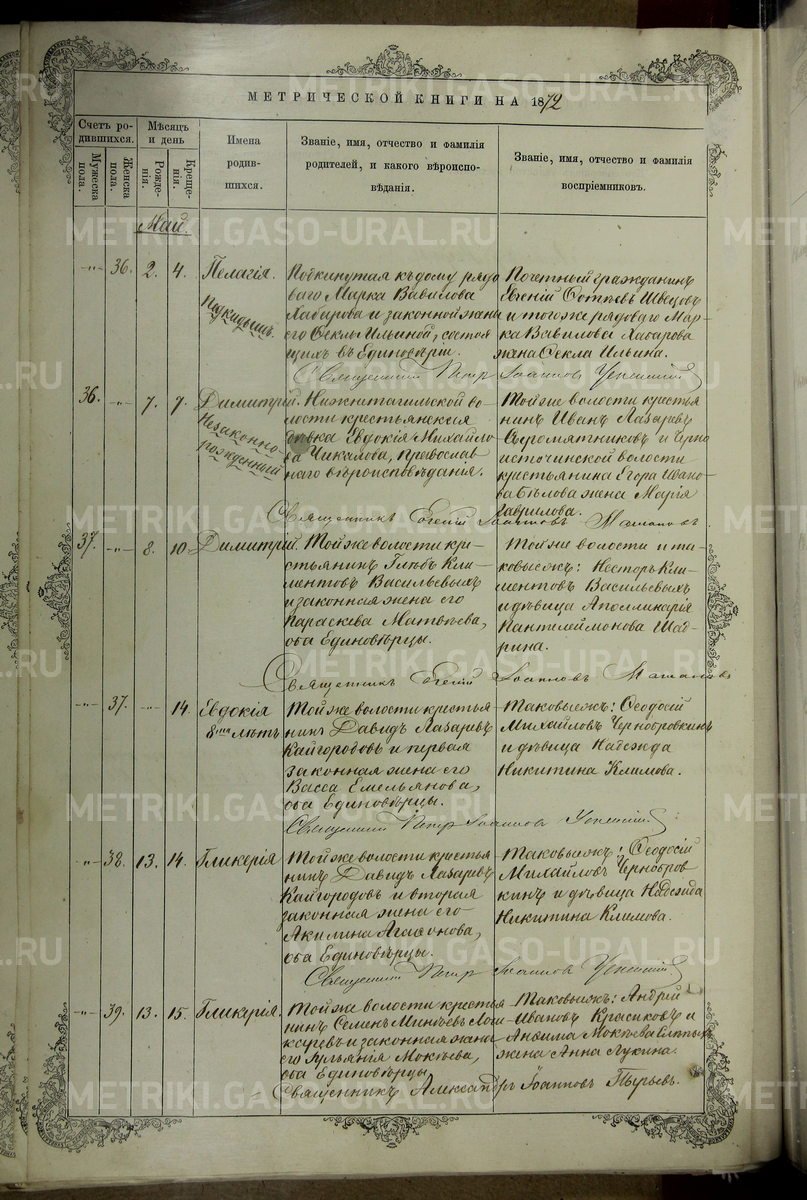 МЕТРИЧЕСКОЙ КНИГИ НА 1872
Счетъ ро-
дившихся.
Мужеска
пола.
Женска
пола.
Мѣсяцъ
и день
Рожде-
нія.
Креще-
нія.
Имена
родив-
шихся.
Званіе, имя, отчество и фамилія
родителей, и какого вѣроиспо-
вѣданія.
Званіе, имя, отчество и фамилія
воспріемниковъ.
Май.
-"- 36. 2. 4. Пелагія.
Подкидышъ.
Подкинутая къ дому рядо
ваго Марка Вавилова
Хабарова и законной жены
его Ѳеклы Ильиной, состоя
щихъ въ Единовѣріи.
Почетный гражданинъ
Евгеній Шведовъ
и того же рядоваго Мар-
ка Вавилова Хабарова
жена Ѳекла Ильина.
Священникъ Петръ Іоанновъ Успенскій
36. -"- 7. 7. Димитрій.
Незаконно-
рожденный
Нижнетагильской во-
лости крестьянская
дѣвка Евдокія Михайло
ва Чикалова, Православ
наго вѣроисповѣданія.
Той же волости кресть
нинъ Иванъ Лазаревъ
Сыромятниковъ и Черно
источинской волости
крестьянина Егора Ивано
ва Бѣлова жена Марія
Гаврилова.
Священникъ Евгеній Іоанновъ
37. -"- 8. 10. Димитрій.
Той же волости кре-
стьянинъ Глѣбъ Кли-
ментовъ Васильевыхъ
и законная жена его
Параскева Матвѣева,
оба Единовѣрцы.
Той же волости и та-
ковыежъ: Несторъ Кли-
ментовъ Васильевыхъ
и дѣвица Аполлинарія
Пантелеймонова Шад-
рина.
Священникъ Евгеній Іоанновъ
-"- 37. -"- 14. Евдокія
8ми лѣтъ
Той же волости крестья
нинъ Давидъ Лазаревъ
Кайгородовъ и первая
законная жена его
Васса Емельянова,
оба Единовѣрцы.
Таковыежъ: Ѳеодосій
Михайловъ Чернобровкинъ
и дѣвица Надежда
Никитина Климова.
Священникъ Петръ Іоанновъ Успенскій
-"- 38. 13. 14. Гликерія
Той же волости крестья
нинъ Давидъ Лазаревъ
Кайгородовъ и вторая
законная жена его
Акилина Агафонова,
оба Единовѣрцы.
Таковыежъ: Ѳеодосій
Михайловъ Чернобров
кинъ и дѣвица Надежда
Никитина Климова.
Священникъ Петръ Іоанновъ Успенскій
-"- 39. 13. 15. Гликерія.
Той же волости крестья
нинъ Семенъ Минѣевъ Лош
каревъ и законная жена
его Іульянія Мокѣева,
оба Единовѣрцы
Таковыежъ: Андрей
Ивановъ Красиковъ и
Анѳима Мокѣева
жена Анна Лукина.
Священникъ Александръ Іоанновъ Пырьевъ.
METRIKI.GASO-URAL.RU